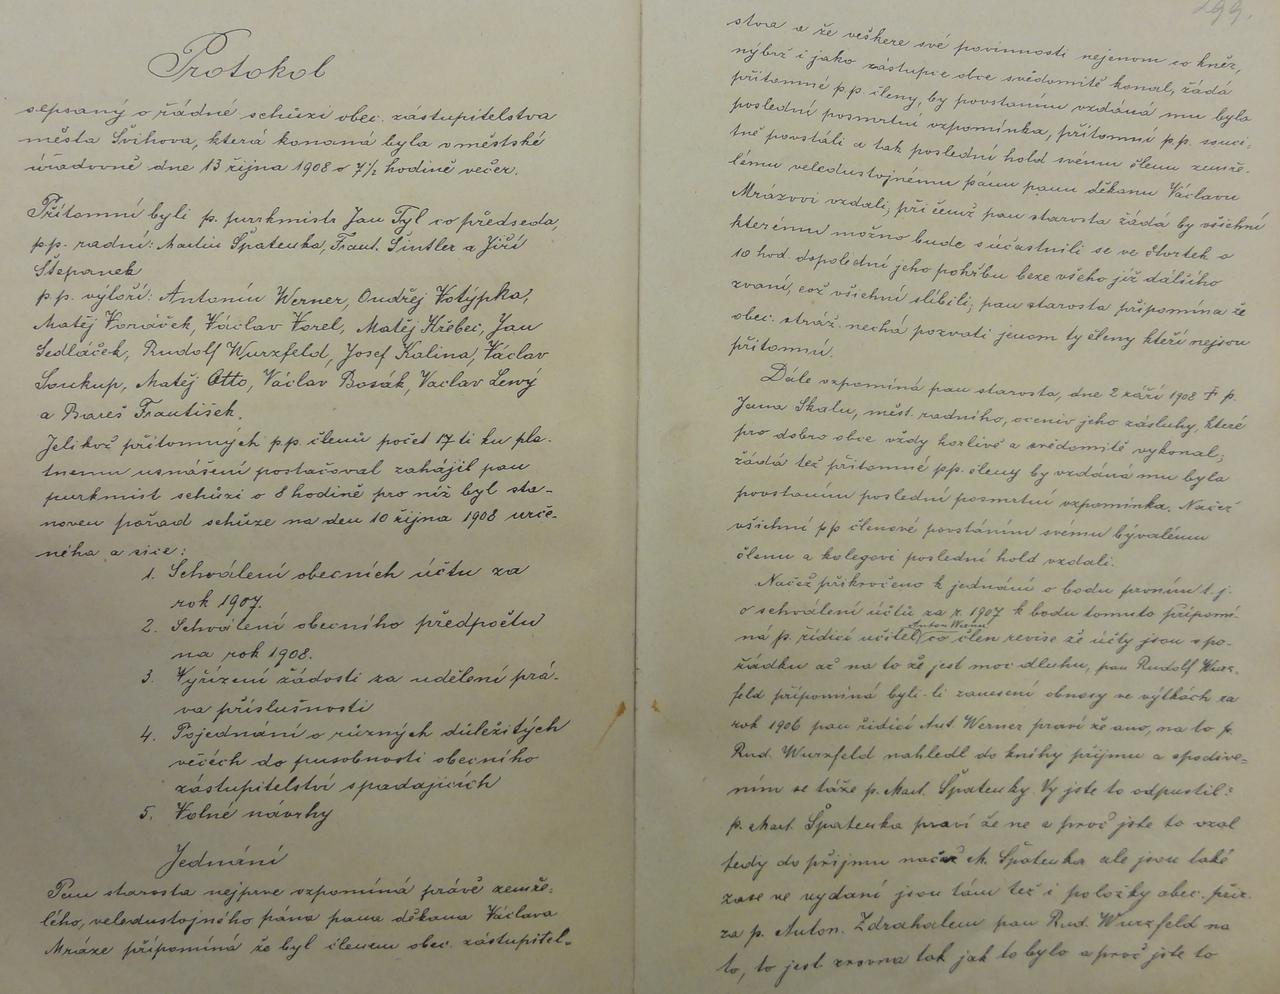 Protokol
sepsaný o řádné schůzi obec. zástupitelstva
města Švihova, která konaná byla v městské
úřadovně dne 13 října 1908 o 7½ hodině večer.
Přítomni byli p. purkmistr Jan Tyl co předseda,
p.p. radní: Martin Špatenka, Frant. Šintler a Jiří
Štěpanek
p.p. výloři: Antonín Werner, Ondřej Votýpka,
Matěj Voráček, Václav Vorel, Matěj Hřebec, Jan
Sedláček, Rudolf Wurzfeld, Josef Kalina, Václav
Soukup, Matěj Otto, Václav Bosák, Vaclav Lewý
a Bareš František.
Jelikož přítomných p.p. členů počet 17ti ku pla-
tnemu usnášení postačoval zahájil pan
purkmist schůzi o 8 hodině pro níž byl sta-
noven pořad schůze na den 10 října 1908 urče-
ného a sice:
1. Schválení obecních účtu za
rok 1907.
2. Schválení obecního předpočtu
na rok 1908.
3. Vyřízení žádosti za udělení prá-
va příslušnosti
4. Pojednání o různých důležitých
věcéch do pusobnosti obecního
zástupitelství spadajících
5. Volné návrhy
Jednání
Pan starosta nejprve vzpomíná právě zemře-
lého, veledustojného pána pana děkana Václava
Mráze připomíná že byl členem obec. zástupitel-
199.
stva a že veškere své povinnosti nejenom co kněz,
nýbrž i jako zástupce obce svědomitě konal, žádá
přítomné p.p. členy, by povstaním vzdáná mu byla
poslední posmrtní vzpomínka, přítomní p.p. souci-
tně povstáli a tak poslední hold svému členu zemře-
lému veledustojnému pánu panu děkanu Václavu
Mrázovi vzdali; při čemž pan starosta žádá by všichni
kterému možno bude súčastnili se ve čtvrtek o
10 hod. dopolední jeho pohřbu beze všeho již dálšího
zvaní, což všichni slíbili; pan starosta připomína že
obec. stráž. nechá pozvati jenom ty členy kteří nejsou
přítomní.
Dále vzpomíná pan starosta, dne 2 září 1908 † p.
Jana Skalu, měst. radního, oceniv jeho zásluhy, které
pro dobro obce vždy horlivě a svědomitě vykonal;
žádá též přítomné p.p. členy by vzdáná mu byla
povstaním poslední posmrtní vzpomínka. Načež
všichni p.p. členové povstáním svému bývalému
členu a kolegovi poslední hold vzdali.
Načež přikročeno k jednání o bodu prvním t.j.
o schválení účtu za r. 1907 k bodu tomuto připomí-
Anton Werner
ná p. řídicí učitel co člen revise že účty jsou spo-
řádku ač na to že jest moc dluhu, pan Rudolf Wurz-
feld připomíná byli-li zanesení obnosy ve výtkách za
rok 1906 pan řídicí Ant Werner praví že ano, na to p.
Rud. Wurzfeld nahledl do knihy příjmu a spodive-
ním se táže p. Mart. Špatenky. Vy jste to odpustil?
p. Mart. Špatenka praví že ne a proč jste to vzal
tedy do příjmu načež M. Špatenka ale jsou také
zase ve vydaní jsou tám též i položky obec. přir.
za p. Anton. Zdrahalem pan Rud. Wurzfeld na
to, to jest zrovna tak jak to bylo a proč jste to